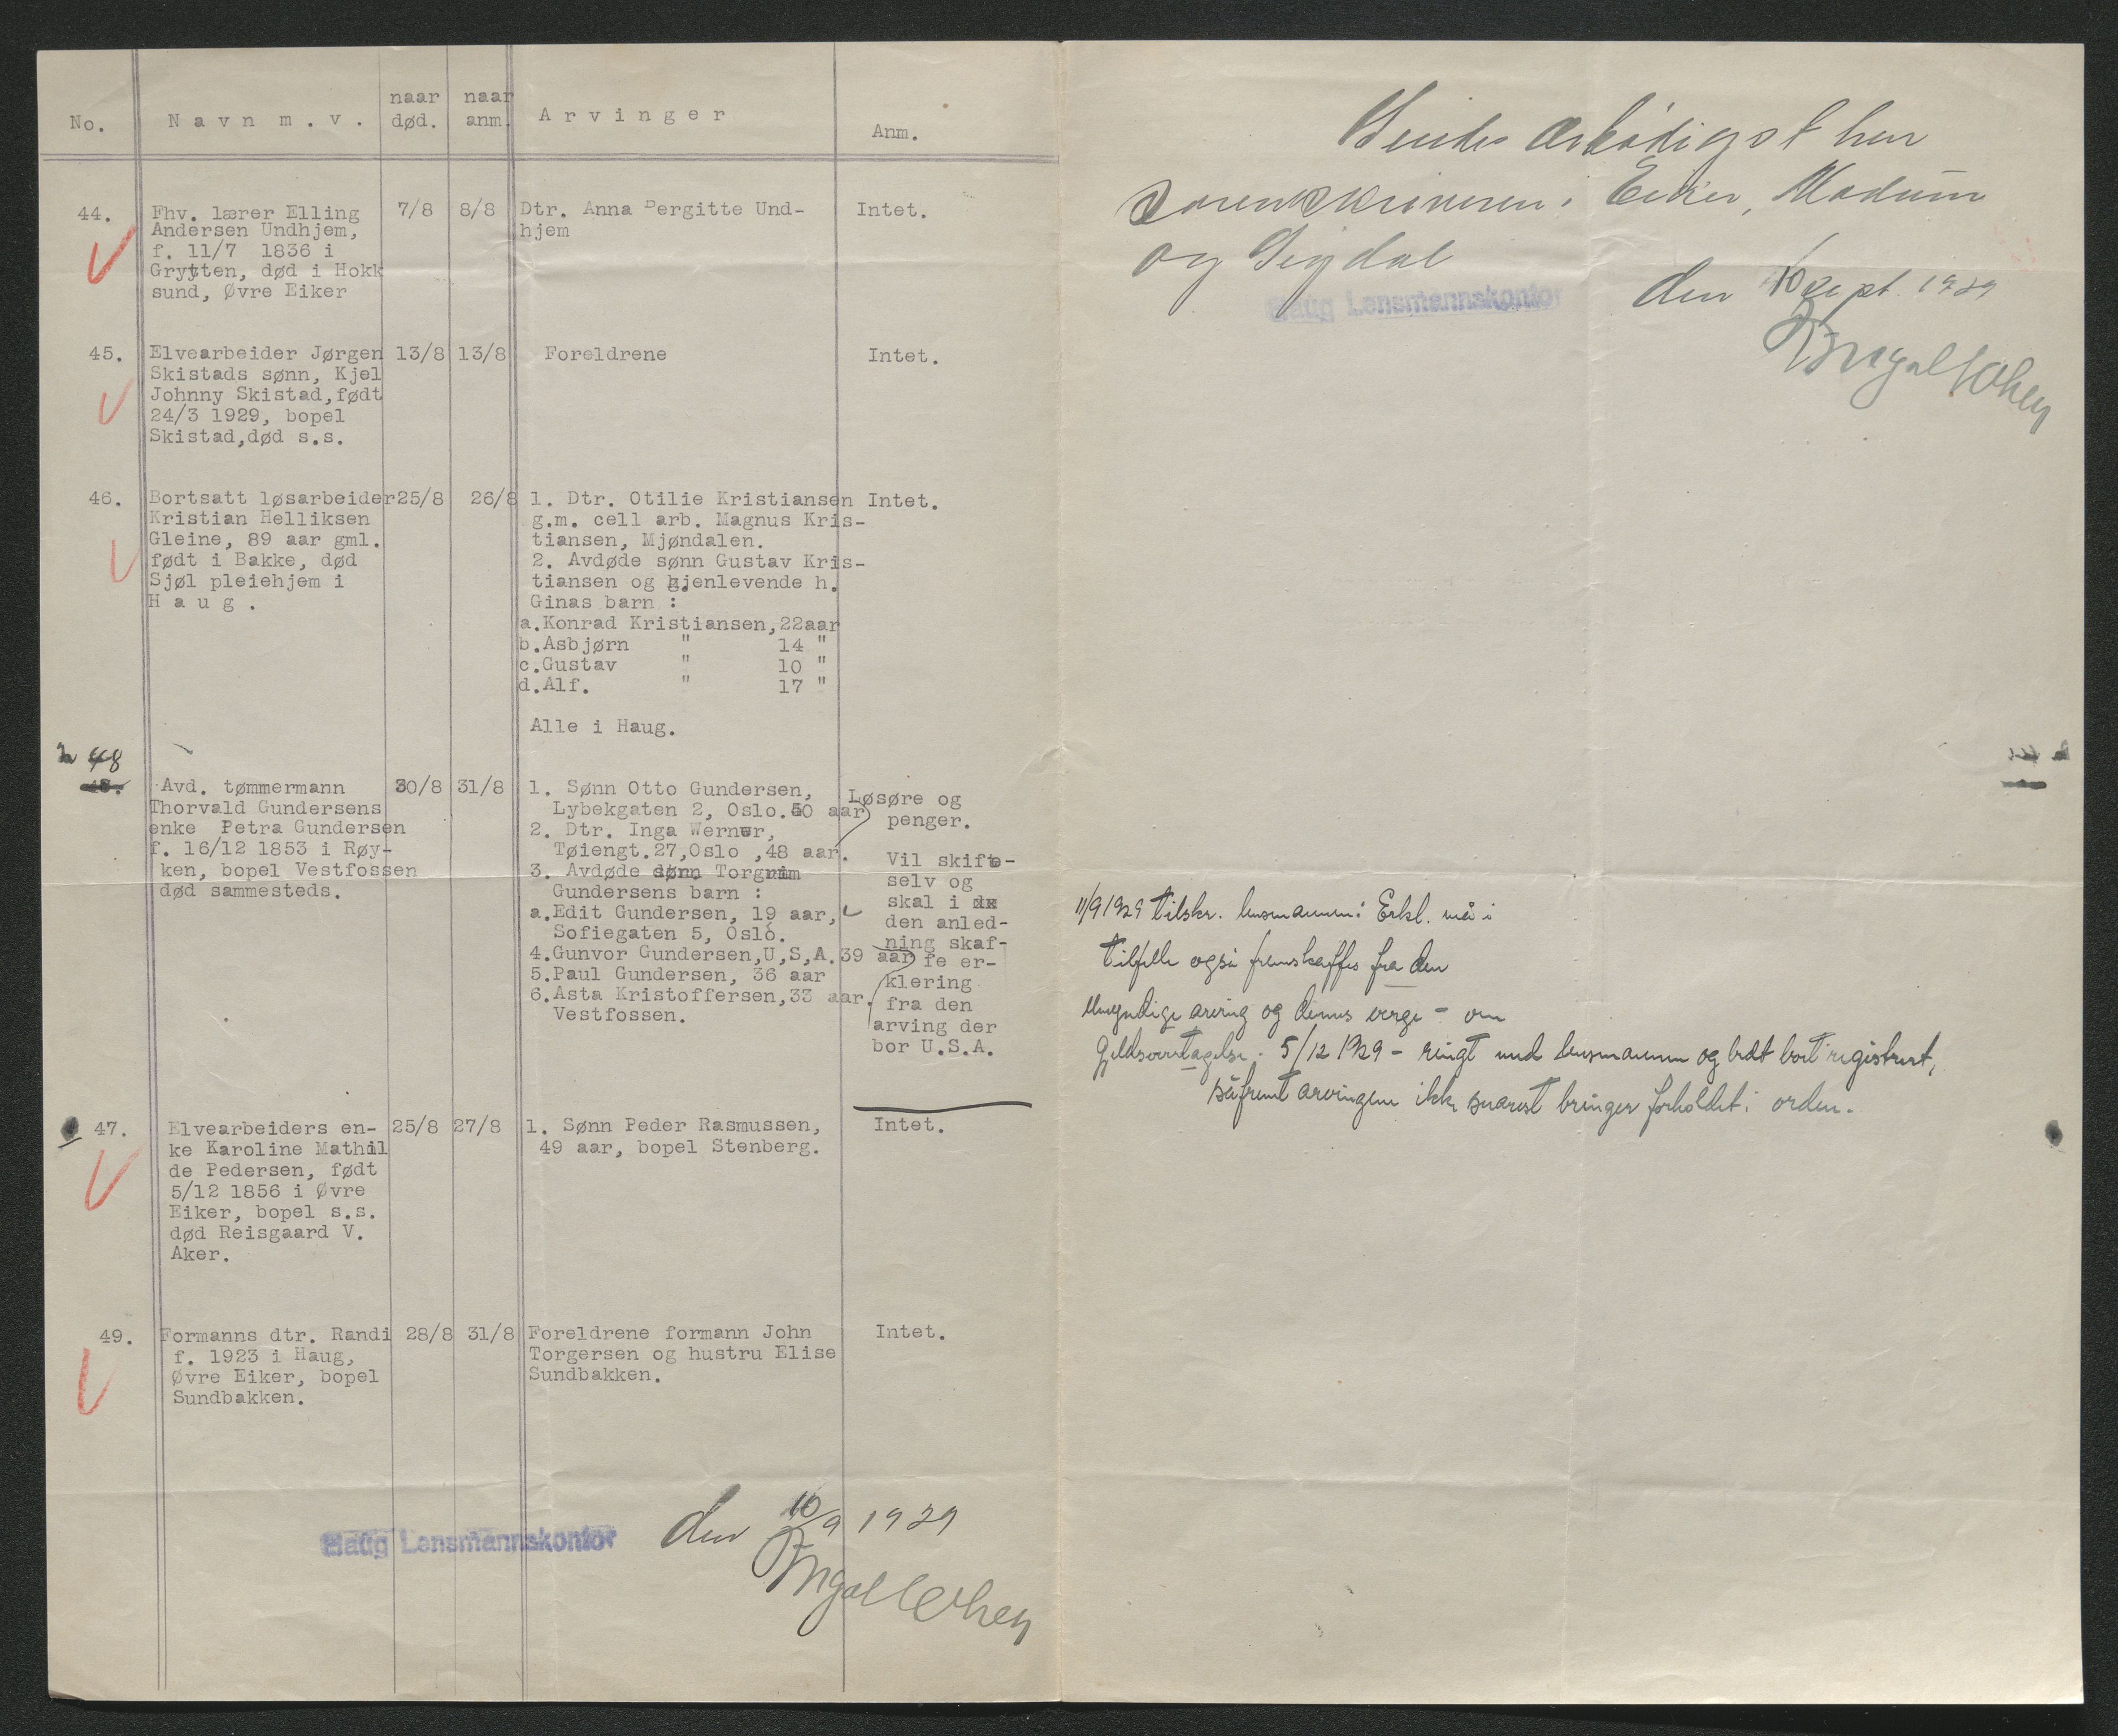 No.
Navn m.v.
naar død.
naar anm.
Arvinger
Anm.
44.
Fhv. lærer Elling
Andersen Undhjem,
f. 11/7 1836 i
Grytten, død i Hokk
sund, Øvre Eiker
7/8
8/8
Dtr. Anna Bergitte Und-
hjem
Intet.
45.
Elvearbeider Jørgen
Skistads sønn, Kjel
Johnny Skistad,født
24/3 1929, bopel
Skistad,død s.s.
13/8
13/8
Foreldrene
Intet.
46.
Bortsatt løsarbeider
Kristian Helliksen
Gleine, 89 aar gml.
født i Bakke, død
Sjøl pleiehjem i
Haug.
25/8
26/8
1. Dtr. Otilie Kristiansen
g.m. cell arb. Magnus Kris-
tiansen, Mjøndalen.
2. Avdøde sønn Gustav Kris-
tiansen og gjenlevende h.
Ginas barn :
a.Konrad Kristiansen,22aar
b.Asbjørn " 14 "
c.Gustav " 10 "
d.Alf. " 17 "
Alle i Haug.
Intet.
48
Avd. tømmermann
Thorvald Gundersens
enke Petra Gundersen
f. 16/12 1853 i Røy-
ken, bopel Vestfossen
død sammesteds.
30/8
31/8
1. Sønn Otto Gundersen,
Lybekgaten 2, Oslo. 50 aar
2. Dtr. Inga Werner,
Tøiengt.27,Oslo ,48 aar.
3. Avdøde sønn Torgrim
Gundersens barn :
a.Edit Gundersen, 19 aar,
Sofiegaten 5, Oslo.
4.Gunvor Gundersen,U,S,A.39 aar
5.Paul Gundersen, 36 aar
6.Asta Kristoffersen,33 aar.
Vestfossen.
Løsøre og
penger.
Vil skifte-
selv og
skal i
den anled-
ning skaf-
fe er-
klering
fra den
arving der
bor U.S.A.
47.
Elvearbeiders en-
ke Karoline Mathil
de Pedersen, født
5/12 1856 i Øvre
Eiker, bopel s.s.
død Reisgaard V.
Aker.
25/8
27/8
1. Sønn Peder Rasmussen,
49 aar, bopel Stenberg.
Intet.
49.
Formanns dtr. Randi
f. 1923 i Haug,
Øvre Eiker, bopel
Sundbakken.
28/8
31/8
Foreldrene formann John
Torgersen og hustru Elise
Sundbakken.
Intet.
Haug Lensmannskontor
den 10/9 1929
Sendes ærbødigst herr
Sorenskriveren i Eiker, Modum
og Sigdal
Haug Lensmannskontor
den 10 sept. 1929
11/9 1929 tilskr. lensmannen: Erkl. må i
tilfelle også fremskaffes fra den
umyndige arving og dennes verge - om
gjeldsovertagelse. 5/12 1929 - ringt med lensmannen og bedt boet registrert,
såfremt arvingene ikke snarest bringer forholdet i orden.